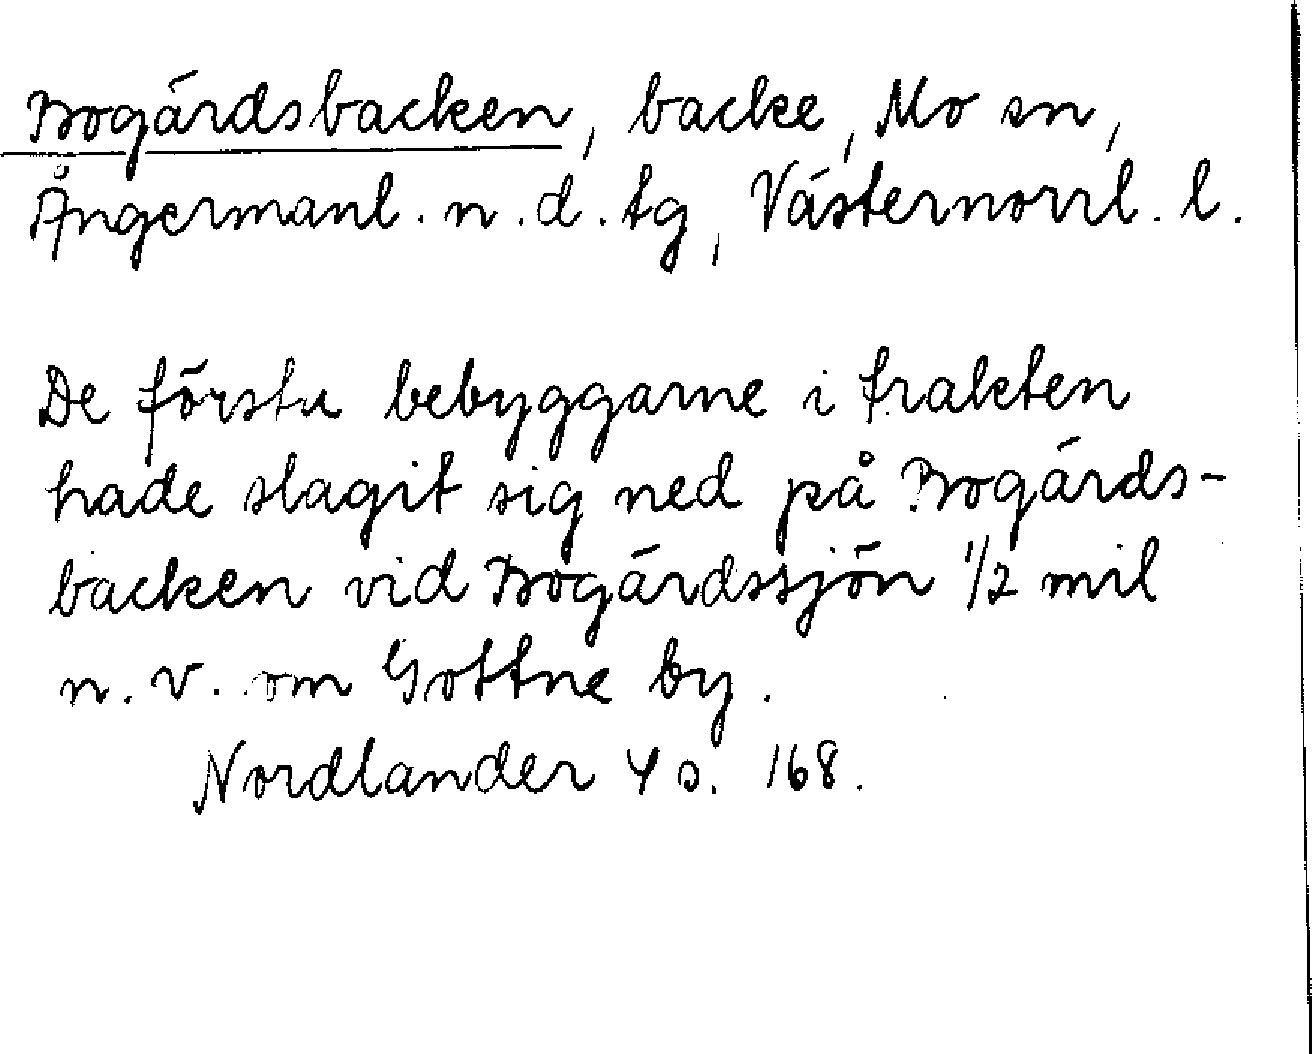 Bogärdsbacken, backe, Mo sn,
Ångermanl. n. d. tg, Västernorrl. l.
De första bebyggarne i trakten
hade slagit sig ned på Bogärds-
backen vid Bogärdssjön 1/2 mil
n. v. om Gottne by.
Nordlander 4 s. 168.